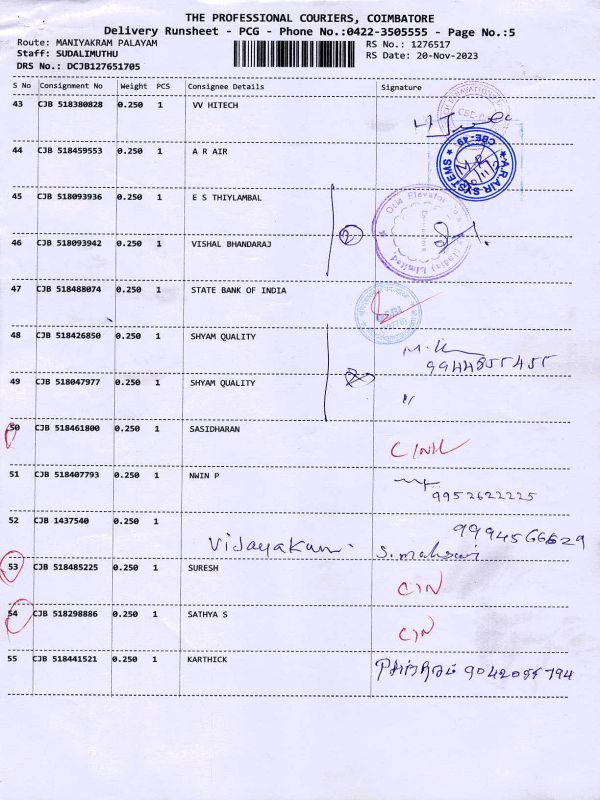 THE PROFESSIONAL COURIERS, COIMBATORE
Delivery Runsheet - PCG - Phone No.:0422-3505555 - Page No.:5
Route: MANIYAKRAM PALAYAM RS No.: 1276517
Staff: SUDALIMUTHU RS Date: 20-Nov-2023
DRS No.: DCJB127651705
S No Consignment No Weight PCS Consignee Details Signature
43 CJB 518380828 0.250 1 VV HITECH
44 CJB 518459553 0.250 1 A R AIR
A.R. AIR SYSTEMS CBE-49.
45 CJB 518093936 0.250 1 E S THIYLAMBAL
46 CJB 518093942 0.250 1 VISHAL BHANDARAJ
2
47 CJB 518488074 0.250 1 STATE BANK OF INDIA
48 CJB 518426850 0.250 1 SHYAM QUALITY
9944855455
49 CJB 518047977 0.250 1 SHYAM QUALITY
"
50 CJB 518461800 0.250 1 SASIDHARAN
51 CJB 518407793 0.250 1 NWIN P
9952622225
52 CJB 1437540 0.250 1
9994566629
53 CJB 518485225 0.250 1 SURESH
CIN
54 CJB 518298886 0.250 1 SATHYA S
CIN
55 CJB 518441521 0.250 1 KARTHICK